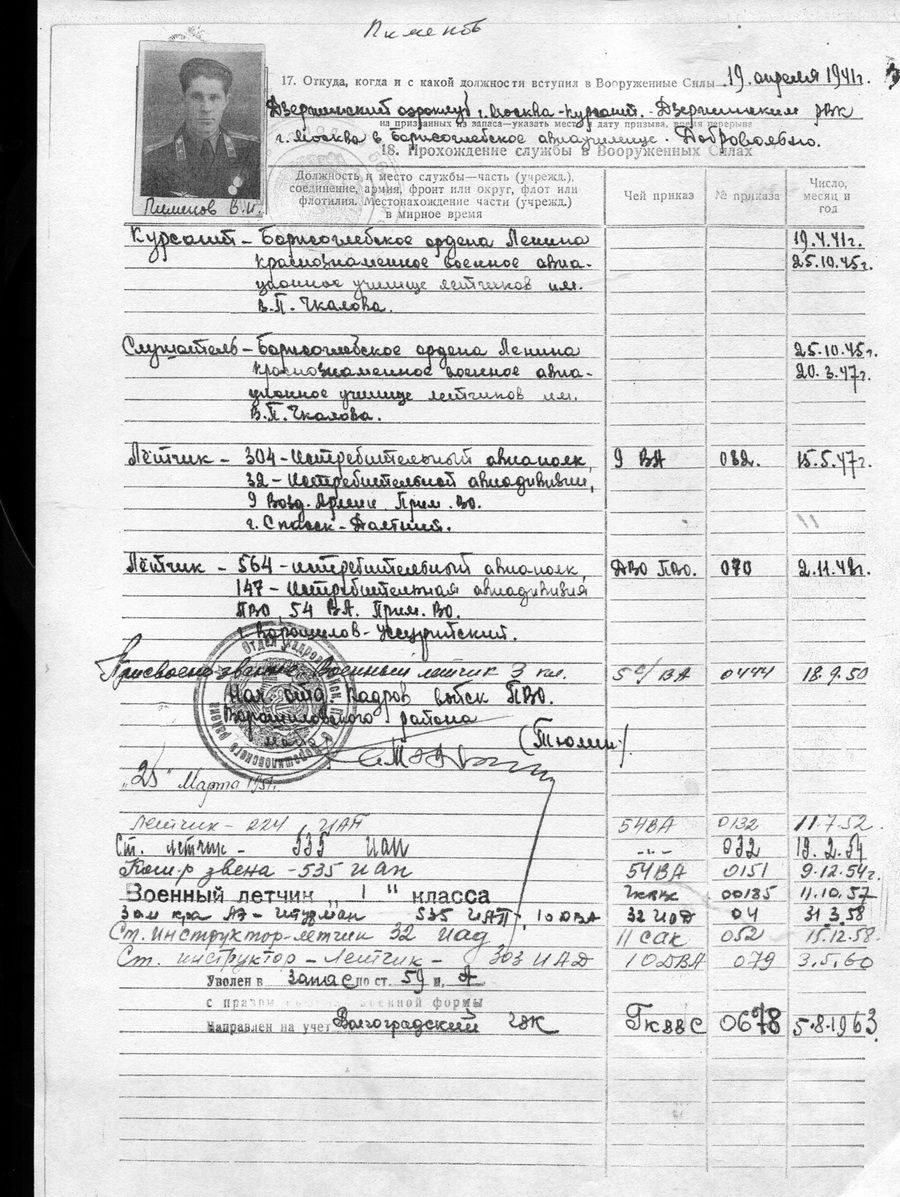 Пименов
17. Откуда, когда и с какой должности вступил в Вооруженные Силы 19 апреля 1941г.
Дзержинский аэроклуб г. Москва - курсант. Дзержинским РВК
на призванных из запаса—указать место и дату призыва, после перерыва
г. Москва в Борисоглебское авиаучилище. Добровольно.
18. Прохождение службы в Вооруженных Силах
Пименов В.И.
Должность и место службы—часть (учрежд.), соединение, армия, фронт или округ, флот или флотилия. Местонахождение части (учрежд.) в мирное время
Чей приказ
№ приказа
Число, месяц и год
Курсант - Борисоглебское ордена Ленина 19.4.41г.
краснознаменное военное авиа- 25.10.45г.
ционное училище летчиков им.
В.П. Чкалова.
Слушатель - Борисоглебское ордена Ленина 25.10.45г.
краснознаменное военное авиа- 20.3.47г.
ционное училище летчиков им.
В.П. Чкалова.
Лётчик - 304 - истребительный авиаполк, 9 ВА 082. 15.5.47г.
32 - истребительной авиадивизии,
9 Возд. Армии Прим. ВО.
г. Спасск - Дальний.
Лётчик - 564 - истребительный авиаполк, ДВО ПВО. 070 2.11.48г.
147 - истребительная авиадивизия
ПВО, 54 ВА. Прим. ВО.
г. Ворошилов - Уссурийский.
Присвоено звание Военный летчик 3 кл. 54 ВА 0444 18.9.50
Нач. отд. Кадров войск ПВО.
Ворошиловского района
(Тюлин).
Марта
Летчик - 224 ИАП 54ВА 0132 11.7.52.
Ст. летчик - 535 иап -"- 032 19.2.54
Ком-р звена - 535 иап 54ВА 0151 9.12.54г.
Военный летчик „ 1 " класса 00185 11.10.57
Зам к-ра АЭ - штурман 535 ИАП, 10ДВА 32 ИАД 04 31.3.58
Ст. инструктор-летчик 32 иад 11 САК 052 15.12.58.
Ст. инструктор - летчик - 303 ИАД 10ДВА 079 3.5.60
Уволен в запас по ст. 59 п. А
с правом военной формы
Направлен на учет Волгоградский ГВК ГКВВС 0678 5.8.1963